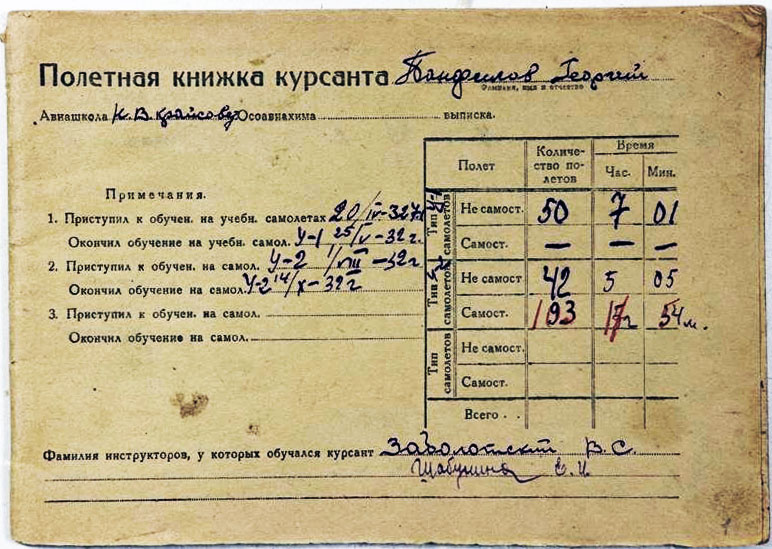 Полетная книжка курсанта Панфилов Георгий
Фамилия, имя и отчество
Авиашкола К.В. Осоавиахима выписка.
Примечания.
1. Приступил к обучен. на учебн. самолетах 20/IV-32г
Окончил обучение на учебн. самол. У-1 25/V-32г.
2. Приступил к обучен. на самол. У-2 1/VIII-32г
Окончил обучение на самол. У-2 14/X-32г
3. Приступил к обучен. на самол.
Окончил обучение на самол.
Полет Количество полетов Время
Час. Мин.
Тип У-1 самолетов
Не самост. 50 7 01
Самост. — — —
Тип У-2 самолетов
Не самост. 42 5 05
Самост. 193 17г 54м.
Тип самолетов
Не самост.
Самост.
Всего
Фамилия инструкторов, у которых обучался курсант Заболотский В.С.
Шабунина Е.И.